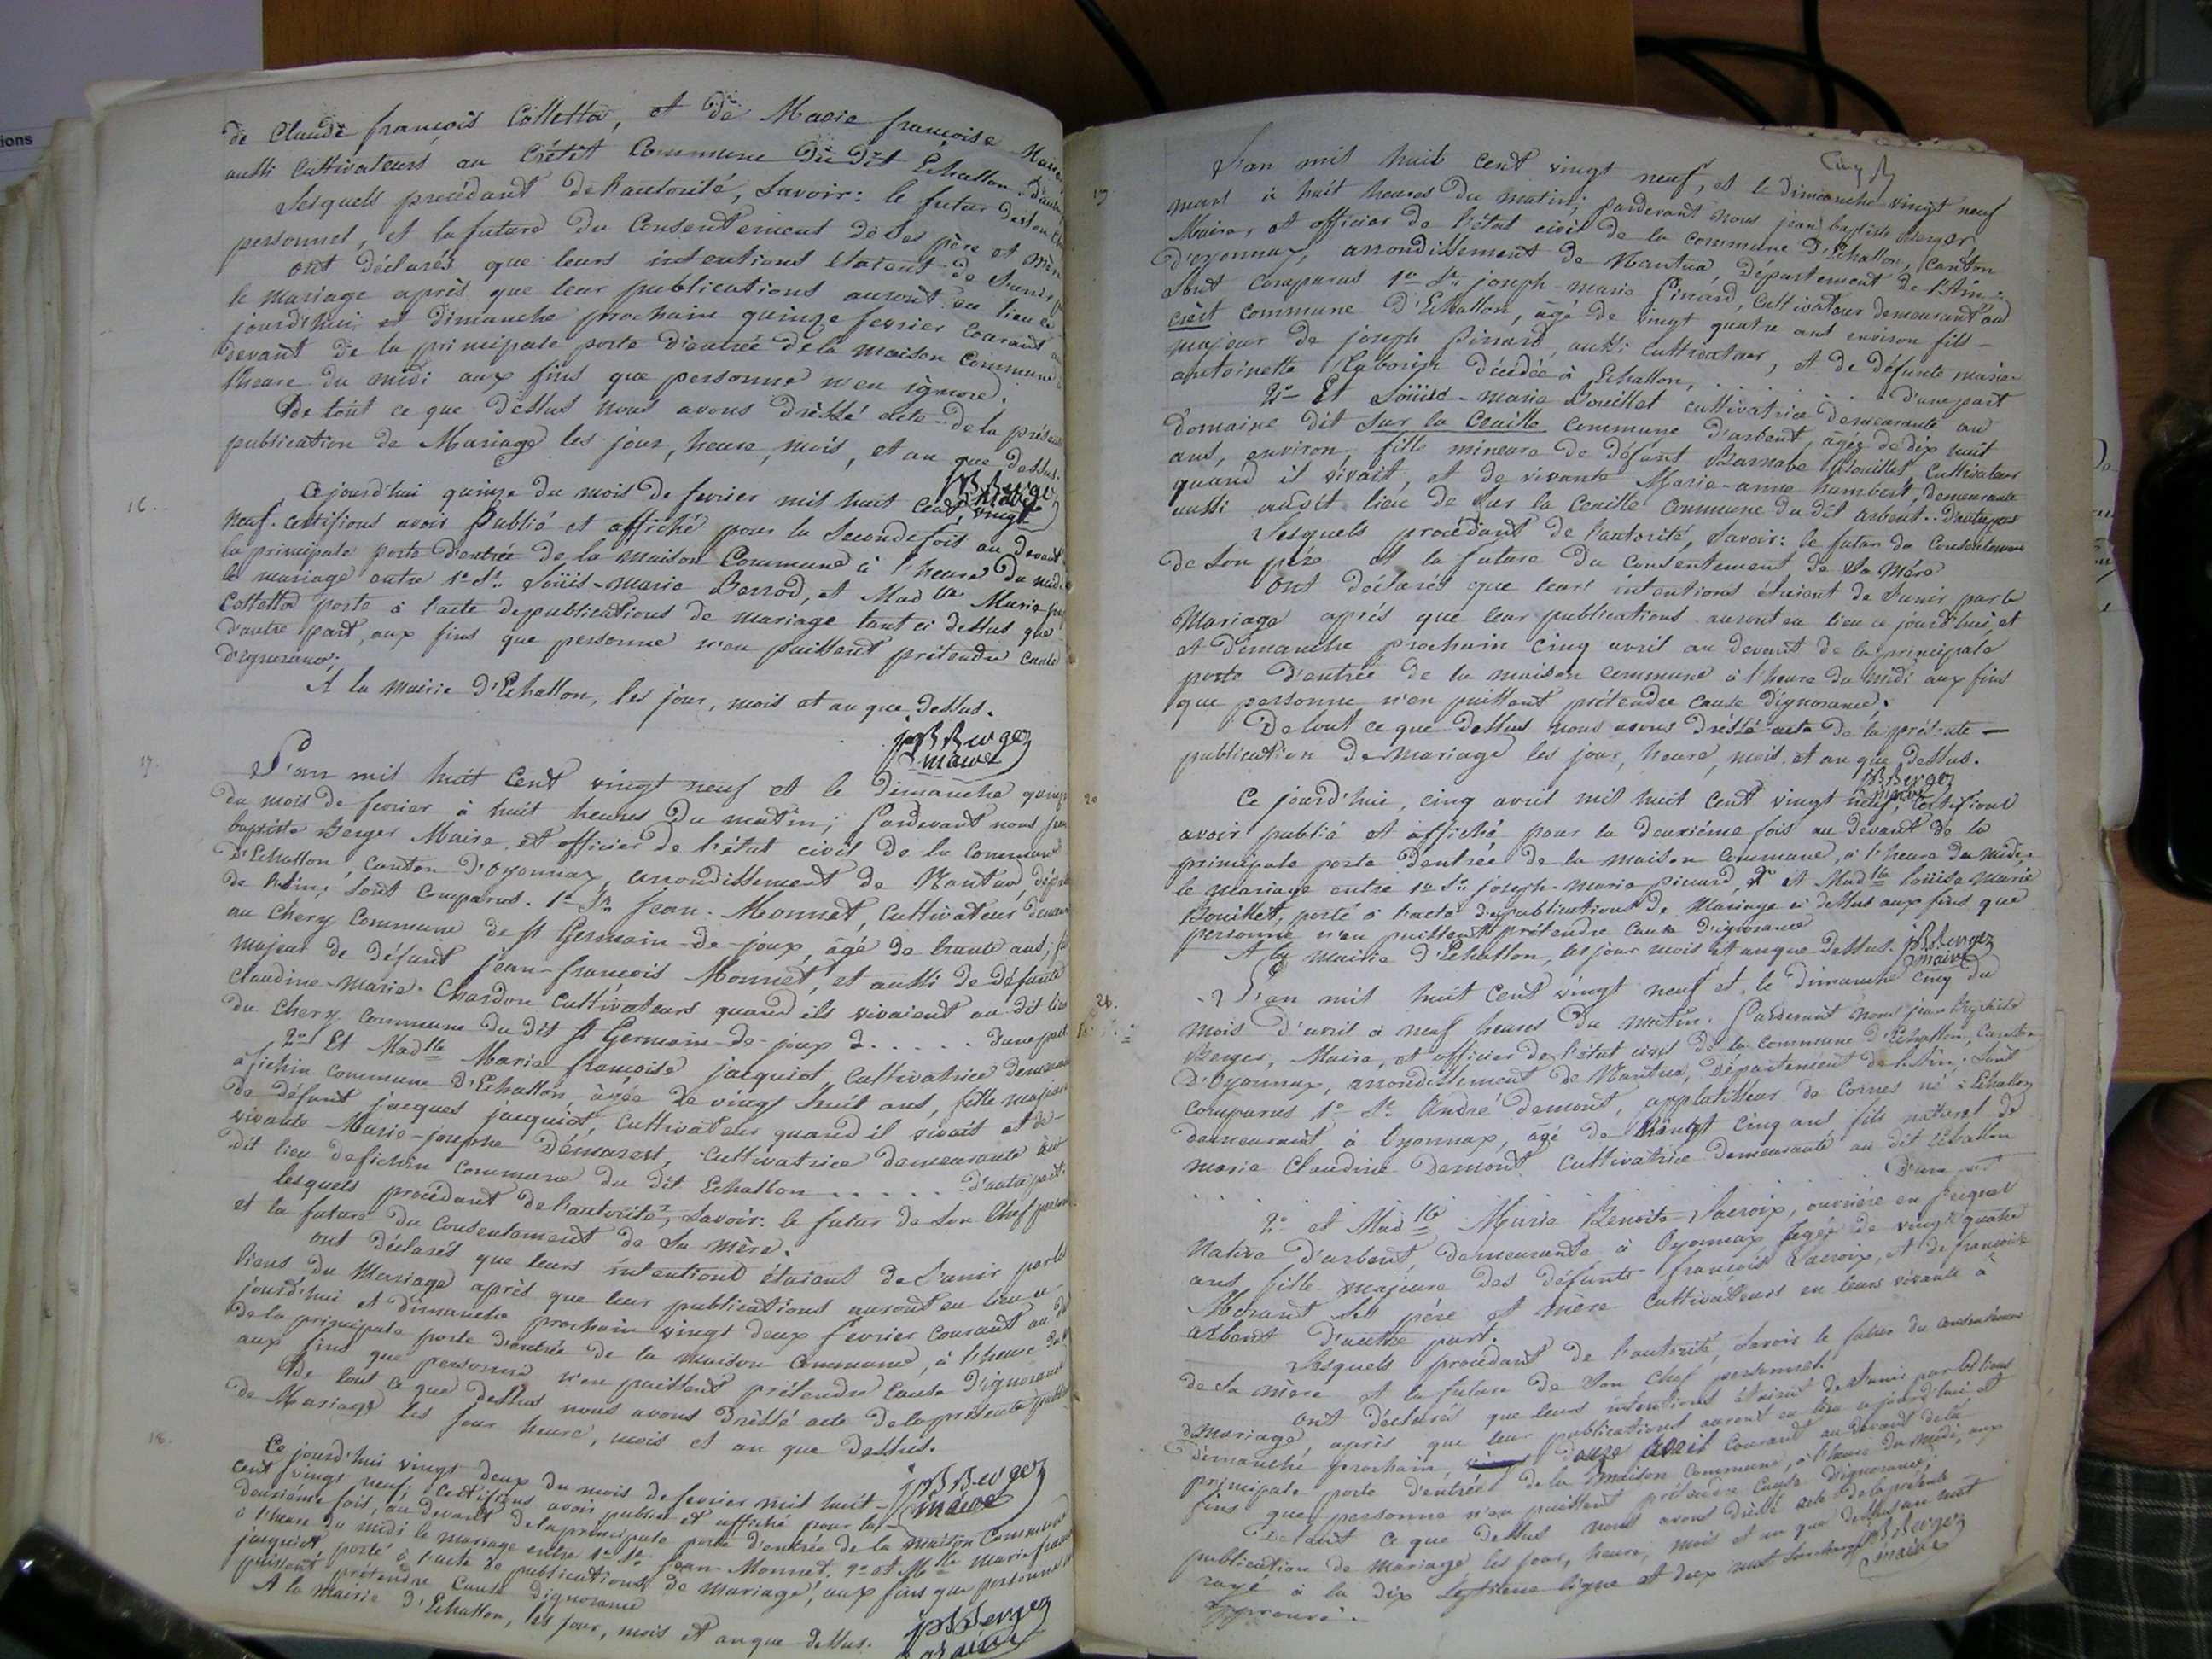 ions
de Claude françois Colletta, et de Marie françoise
aussi Cultivateurs au Crétêt Commune du dit Echallon
Lesquels procédant de l'autorité, Savoir: le futur de son
personnel, et la future du Consentement de ses père et mère
ont déclarés que leurs intentions étaient de s'unir
le mariage après que leur publications auront eu lieu ce
jourd'hui et dimanche prochain quinze fevrier Courant au
devant de la principale porte d'entrée de la maison Commune
l'heure du midi aux fins que personne n'en ignore.
De tout ce que dessus nous avons dréssé acte de la présente
publication de Mariage les jour, heure, mois, et an que dessus.
JB Berger
maire
16.
Ce jourd'hui quinze du mois de fevrier mil huit cent vingt
neuf. certifions avoir Publié et affiché pour la Seconde fois au devant
la principale porte d'entrée de la maison Commune à l'heure du midi
le mariage entre 1º Sr. Loüis-marie Berrod, et Madlle Marie
Colletta porté à l'acte de publications de mariage tant ci dessus que
d'autre part, aux fins que personne n'en puissent prétendre cause
d'ignorance;
A la mairie d'Echallon, les jour, mois et an que dessus.
JB Berger
maire
17.
L'an mil huit Cent vingt neuf et le dimanche quinze
du mois de fevrier à huit heures du matin; Pardevant nous jean
baptiste Berger Maire, et officier de l'état civil de la Commune
d'Echallon, canton d'Oyonnax, arrondissement de Nantua, départ
de l'Ain; Sont Comparus. 1º Sr. Jean Monnet, Cultivateur demeurant
au Chery Commune de St Germain-de-joux, âgé de trente ans, fils
majeur de défunt jean-françois Monnet, et aussi de défunte
Claudine-Marie Chardon Cultivateurs quand ils vivaient au dit lieu
du Chery Commune du dit St Germain-de-joux . . . . . d'une part
2º Et Madlle Marie françoise jacquiot, Cultivatrice demeurant
à fichin Commune d'Echallon, âgée de vingt huit ans, fille majeure
de défunt jacques jacquiot, Cultivateur quand il vivait et de
vivante Marie-josephe Démarest, Cultivatrice demeurante au
dit lieu de fichin Commune du dit Echallon . . . . . d'autre part
lesquels procédant de l'autorité, savoir: le futur de son Chef personnel
et la future du Consentement de sa mère.
ont déclarés que leurs intentions étaient de s'unir par les
liens du Mariage après que leur publications auront eu lieu ce
jourd'hui et dimanche prochain vingt deux fevrier courant au devant
de la principale porte d'entrée de la maison Commune, à l'heure du midi
aux fins que personne n'en puissent prétendre Cause d'ignorance
De tout ce que dessus nous avons dréssé acte de la présente publication
de Mariage les jour heure, mois et an que dessus.
JB Berger
maire
18.
Ce jourd'hui vingt deux du mois de fevrier mil huit
cent vingt neuf; certifions avoir publier et affiché pour la
deuxiéme fois, au devant de la principale porte d'entrée de la maison Commune
à l'heure du midi le mariage entre 1º Sr. Jean Monnet. 2º et Mlle Marie françoise
jacquiot porté à l'acte de publications de mariage, aux fins que personne n'en
puissent prétendre Cause d'ignorance
A la Mairie d'Echallon, les jour, mois et an que dessus.
JB Berger
maire
19
L'an mil huit cent vingt neuf, et le dimanche vingt neuf
mars à huit heures du matin; pardevant nous jean baptiste Berger
Maire, et officier de l'état civil de la commune d'Echallon, canton
d'oyonnax, arrondissement de Nantua, département de l'Ain.
Sont Comparus 1º Sr. joseph-marie Pinard, Cultivateur demeurant au
crêt commune d'Echallon, âgé de vingt quatre ans environ fils
majeur de joseph Pinard, aussi Cultivateur, et de défunte marie
antoinette décédée à Echallon, . . . . . d'une part
2º Et Loüise-marie Bouillet cultivatrice demeurante au
domaine dit sur la Ceuille commune d'arbent, âgée de dix huit
ans, environ, fille mineure de défunt Barnabe Bouillet, Cultivateur
quand il vivait, et de vivante Marie-anne humbert, demeurante
aussi audit lieu de sur la Ceuille Commune du dit arbent .. d'autre part
Lesquels procédant de l'autorité, savoir: le futur du Consentement
de son père et la future du Consentement de sa Mére
ont déclarés que leurs intentions étaient de s'unir par le
Mariage après que leur publications auront eu lieu ce jourd'hui, et
et dimanche prochain cinq avril au devant de la principale
porte d'entrée de la maison commune à l'heure du midi aux fins
que personne n'en puissent prétendre cause d'ignorance.
De tout ce que dessus nous avons dréssé acte de la présente
publication de mariage les jour, heure, mois, et an que dessus.
JB Berger
maire
20
Ce jourd'hui, cinq avril mil huit cent vingt neuf, certifions
avoir publié et affiché pour la deuxiéme fois au devant de la
principale porte d'entrée de la maison Commune, à l'heure du midi
le mariage entre 1º Sr. joseph-marie pinard, 2º et Madlle Loüise Marie
Bouillet, porté à l'acte de publications de Mariage ci dessus aux fins que
personne n'en puissent prétendre cause d'ignorance
A la mairie d'Echallon, les jour mois et an que dessus. JB Berger
maire
21.
L'an mil huit cent vingt neuf et le dimanche cinq du
mois d'avril à neuf heures du matin. Pardevant nous jean Baptiste
Berger, Maire, et officier de l'état civil de la commune d'Echallon, Canton
d'Oyonnax, arrondissement de Nantua, département de l'Ain; Sont
comparus 1º Sr. André demont, applatisseur de Cornes né à Echallon
demeurant à Oyonnax, âgé de vingt cinq ans fils naturel de
marie Claudine demont cultivatrice demeurante au dit Echallon
. . . . . d'une part
2º et Madlle Marie Benoite Lacroix, ouvriére en peignes
Native d'arbent, demeurante à Oyonnax âgée de vingt quatre
ans, fille majeure des défunts françois Lacroix, et de françoise
Morant ses père et mère cultivateurs en leurs vivants à
arbent d'autre part.
Lesquels procédant de l'autorité, savoir le futur du consentement
de sa mère et la future de son Chef personnel.
ont déclarés que leurs intentions étaient de s'unir par les liens
du Mariage, après que leur publications auront eu lieu ce jourd'hui et
dimanche prochain, douze avril Courant au devant de la
principale porte d'entrée de la maison Commune, à l'heure du midi, aux
fins que personne n'en puissent prétendre Cause d'ignorance;
De tout ce que dessus nous avons dréssé acte de la présente
publication de mariage les jour, heure, mois et an que dessus un mot
rayé à la dix septieme ligne et deux mot
approuvé.
JB Berger
maire